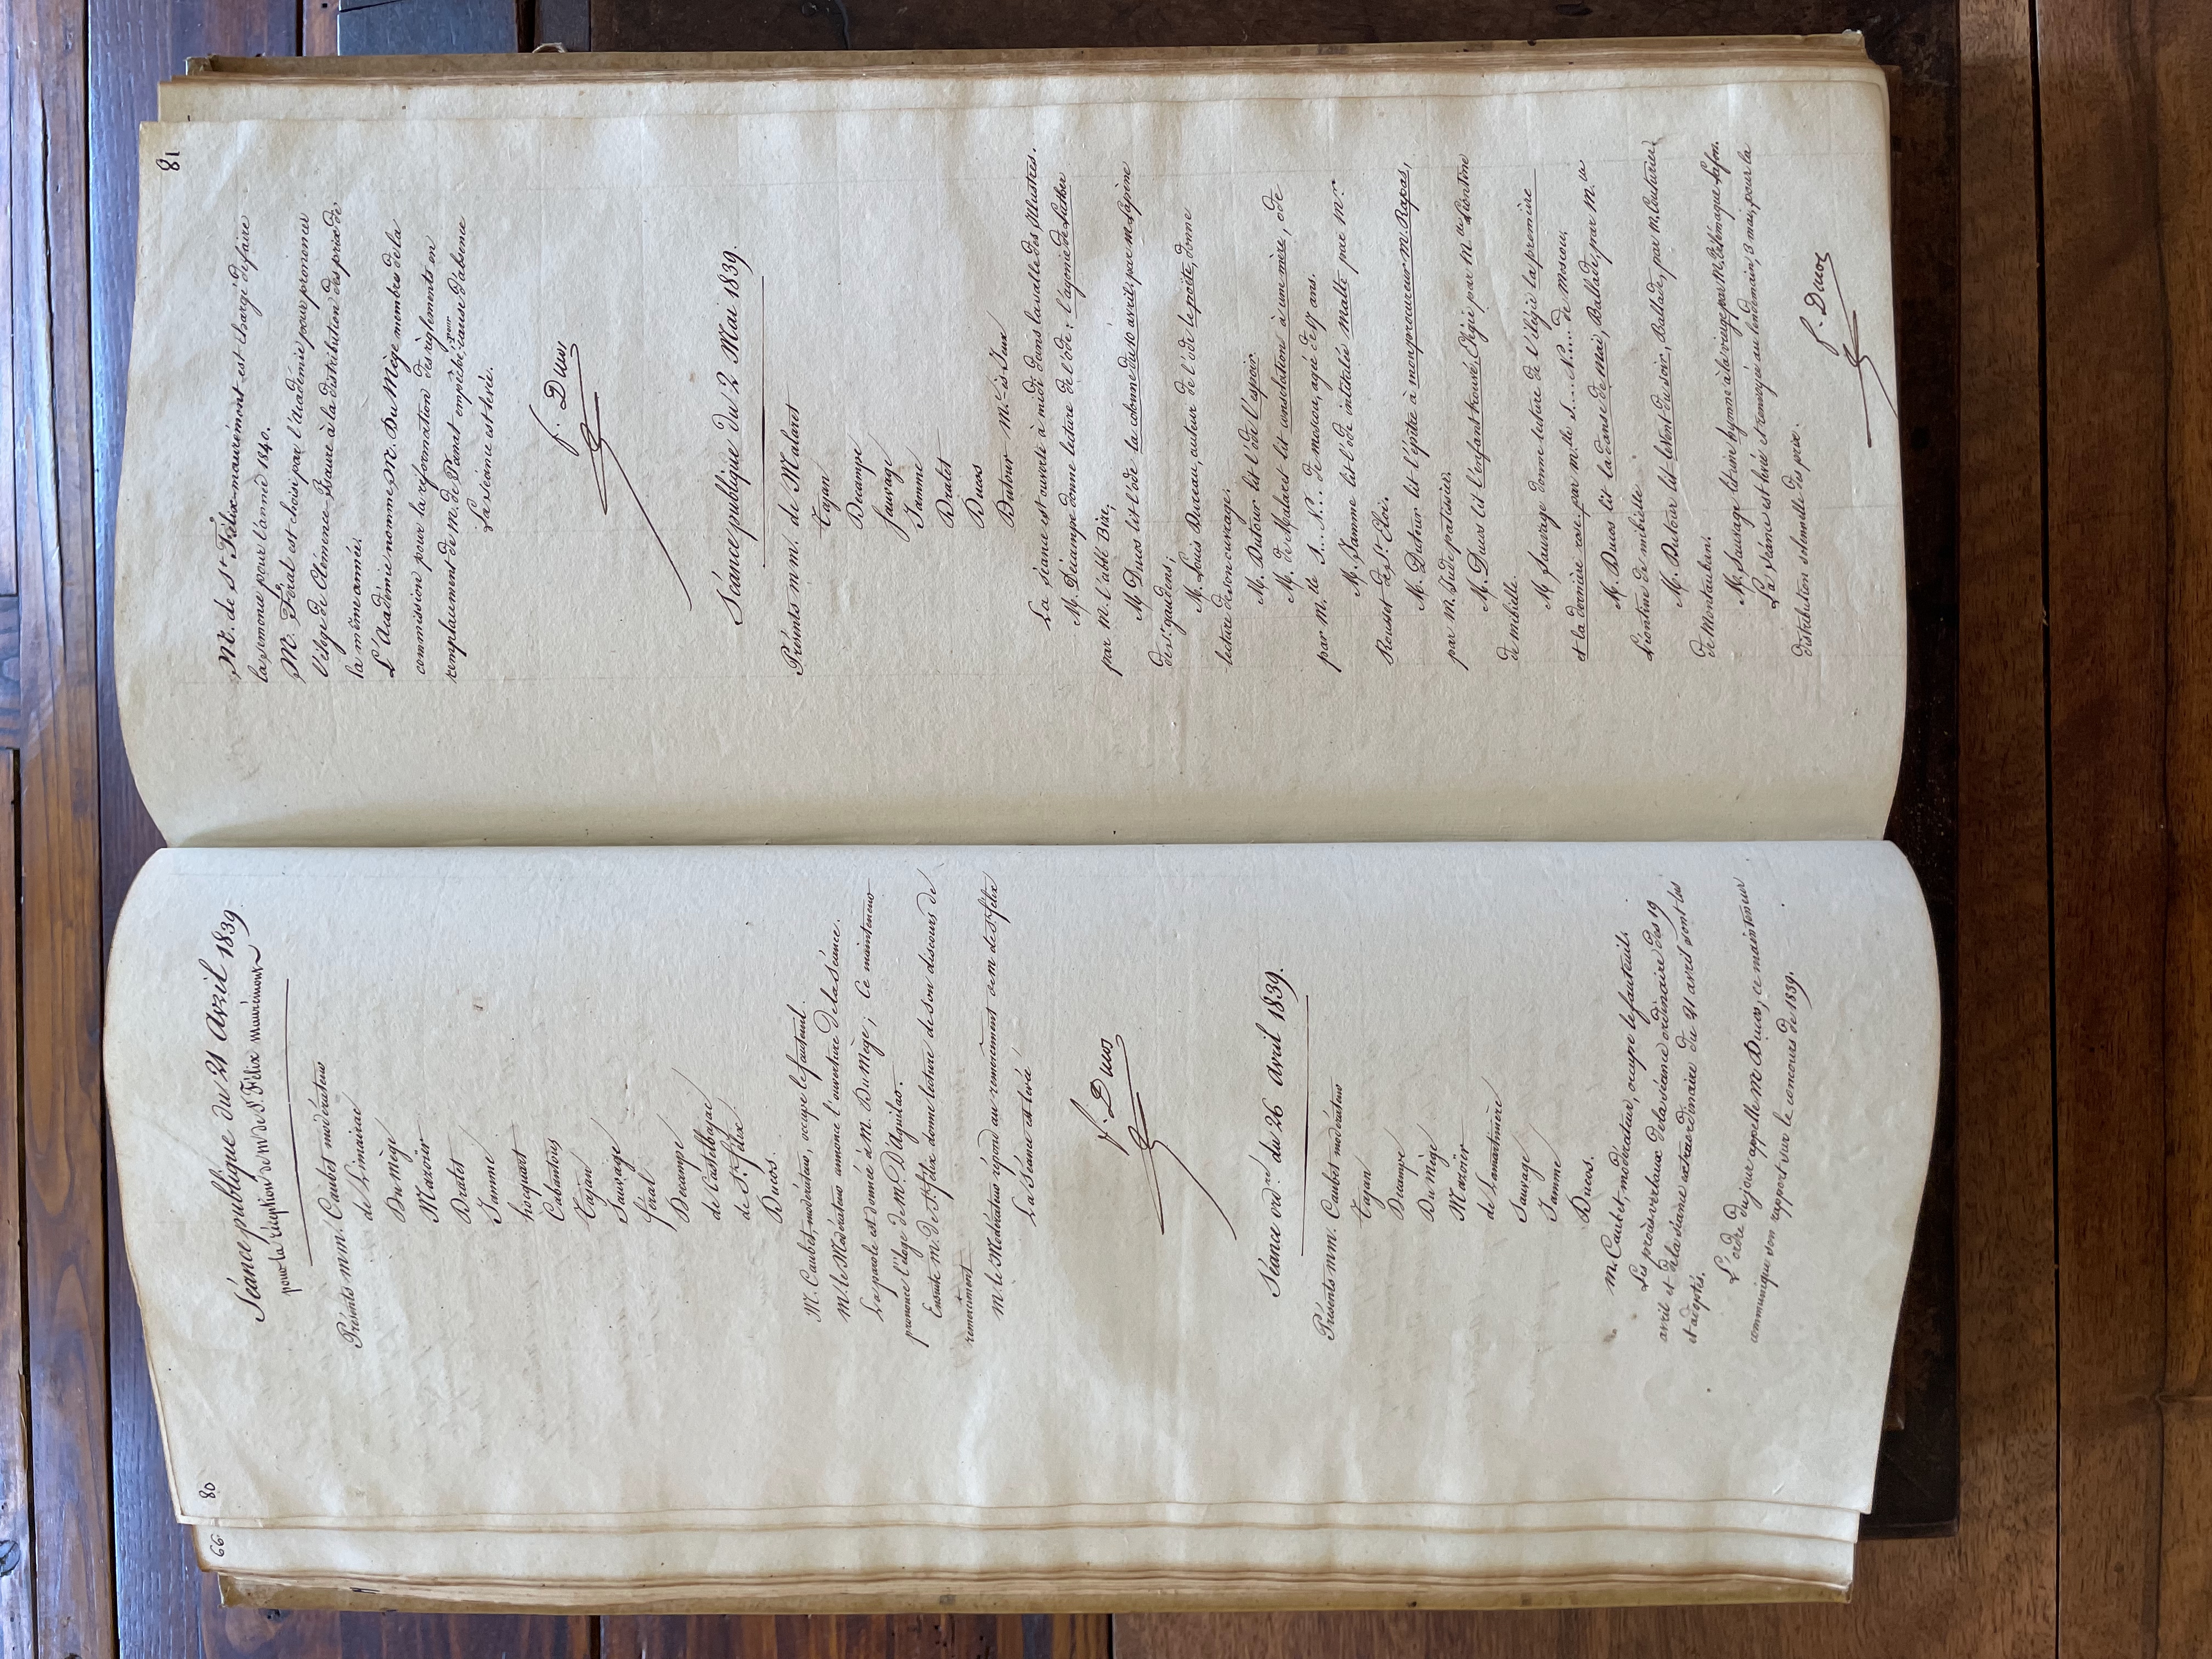 80
Séance publique du 21 avril 1839
pour la réception de M de St. Félix mauremont
Présents mm. Caubet modérateur
de Limairac
Du Mège
Mazoïer
Dralet
Jamme
hocquart
Cabantous
Tajan
Sauvage
féral
Decampe
de Castelbajac
de St. félix
Ducos.
M. Caubet, modérateur, occupe le fauteuil.
M. le Modérateur annonce l'ouverture de la séance.
La parole est donnée à M. Du Mège ; Ce mainteneur
prononce l'éloge de M. D'aguilar.
Ensuite m. de St. félix donne lecture de son discours de
remerciment
M. le Modérateur répond au remerciment de m de St félix
La Séance est levée
f. Ducos
Séance ord.re du 26 avril 1839.
Présents mm. Caubet modérateur
Tajan
Decampe
Du Mège
Mazoïer
de Lamartinière
Sauvage
Jamme
Ducos.
M. Caubet, modérateur, occupe le fauteuil.
Les procès verbaux de la séance ordinaire des 19
avril et de la séance extraordinaire du 21 avril sont lus
et adoptés.
L'ordre du jour appelle M. Ducos, ce mainteneur
communique son rapport sur le concours de 1839.
66
81
M. de St. Félix-maurémont est chargé de faire
la semonce pour l'année 1840.
M. Féral est choisi par l'académie pour prononcer
l'éloge de Clémence-Isaure à la distribution des prix de
la même année.
L'Académie nomme M. Du Mège membre de la
commission pour la réformation des règlements en
remplacement de M. de Panat empêché, pour cause d'absence
La séance est levée.
f. Ducos
Séance publique du 2 Mai 1839.
Présents mm. de Malaret
Tajan
Decampe
Sauvage
Jamme
Dralet
Ducos
Dutour M.e-ès-Jeux
La séance est ouverte à midi dans la salle des Illustres.
M. Décampe donne lecture de l'ode : l'agonie de Luther
par M. l'abbé
M Ducos lit l'ode la colonne du 10 avril, par m Lapène
de St. gaudens,
M. Louis Bureau, auteur de l'ode le poëte, donne
lecture de son ouvrage.
M. Dutour lit l'ode l'espoir
M. de Malaret lit consolation à une mère, ode
par M. lle S.... N... de moscou, agée de 17 ans.
M. Jamme lit l'ode intitulée Malte par M.r
Rousset de St. Eloi.
M. Dutour lit l'épitre à mon procureur M. Rapas,
par M. Jude patissier.
M. Ducos lit l'enfant trouvé Elégie par M.lle
de mibielle.
M Sauvage donne lecture de l'élégie la première
et la dernière rose par m.lle S.... N.... de moscou,
M. Ducos lit la danse de Mai, Ballade par M.lle
Léontine de mibielle
M. Dutour lit le Vent du soir, Ballade, par M. Couturier
de Montauban.
M. Sauvage lit une hymne à la vierge par M. Télémaque Lafon.
La séance est levée et renvoyée au lendemain, 3 mai, pour la
distribution solennelle des prix.
f. Ducos